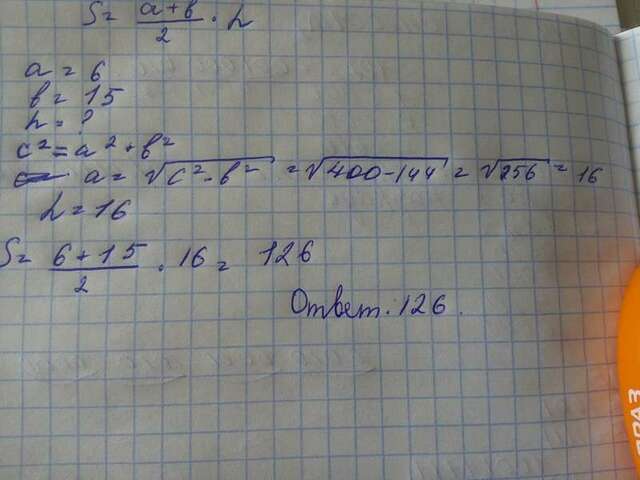 S = a+b/2 · h
a = 6
b = 15
h = ?
c² = a² + b²
a = √c² - b² = √400-144 = √256 = 16
h = 16
S = 6+15/2 · 16 = 126 126
Ответ. 126.